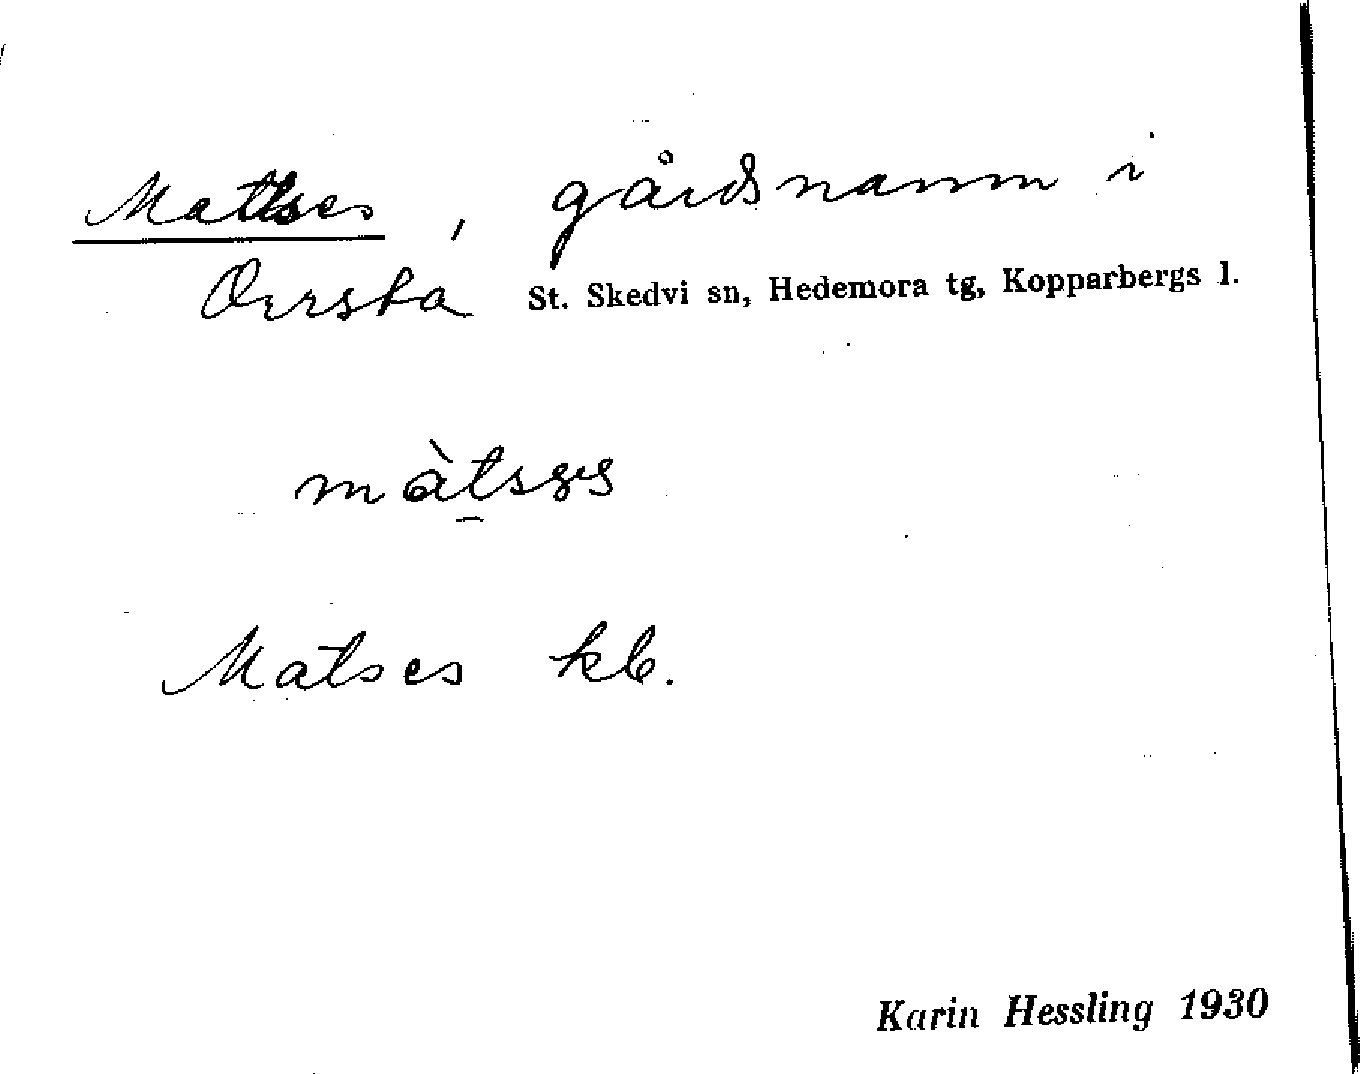 Matses, gårdsnamn i
Orrsta St. Skedvi sn, Hedemora tg, Kopparbergs l.
Matses kb.
Karin Hessling 1930